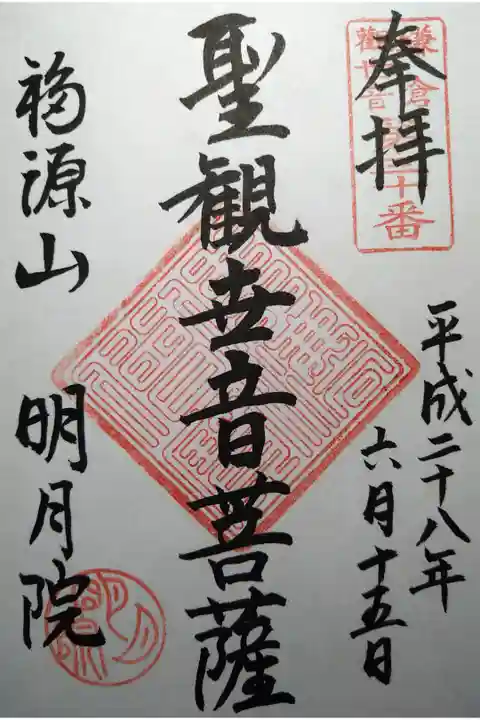 奉拝
鎌倉
觀世音第三十番
平成二十八年
六月十五日
聖観世音菩薩
福源山 明月院